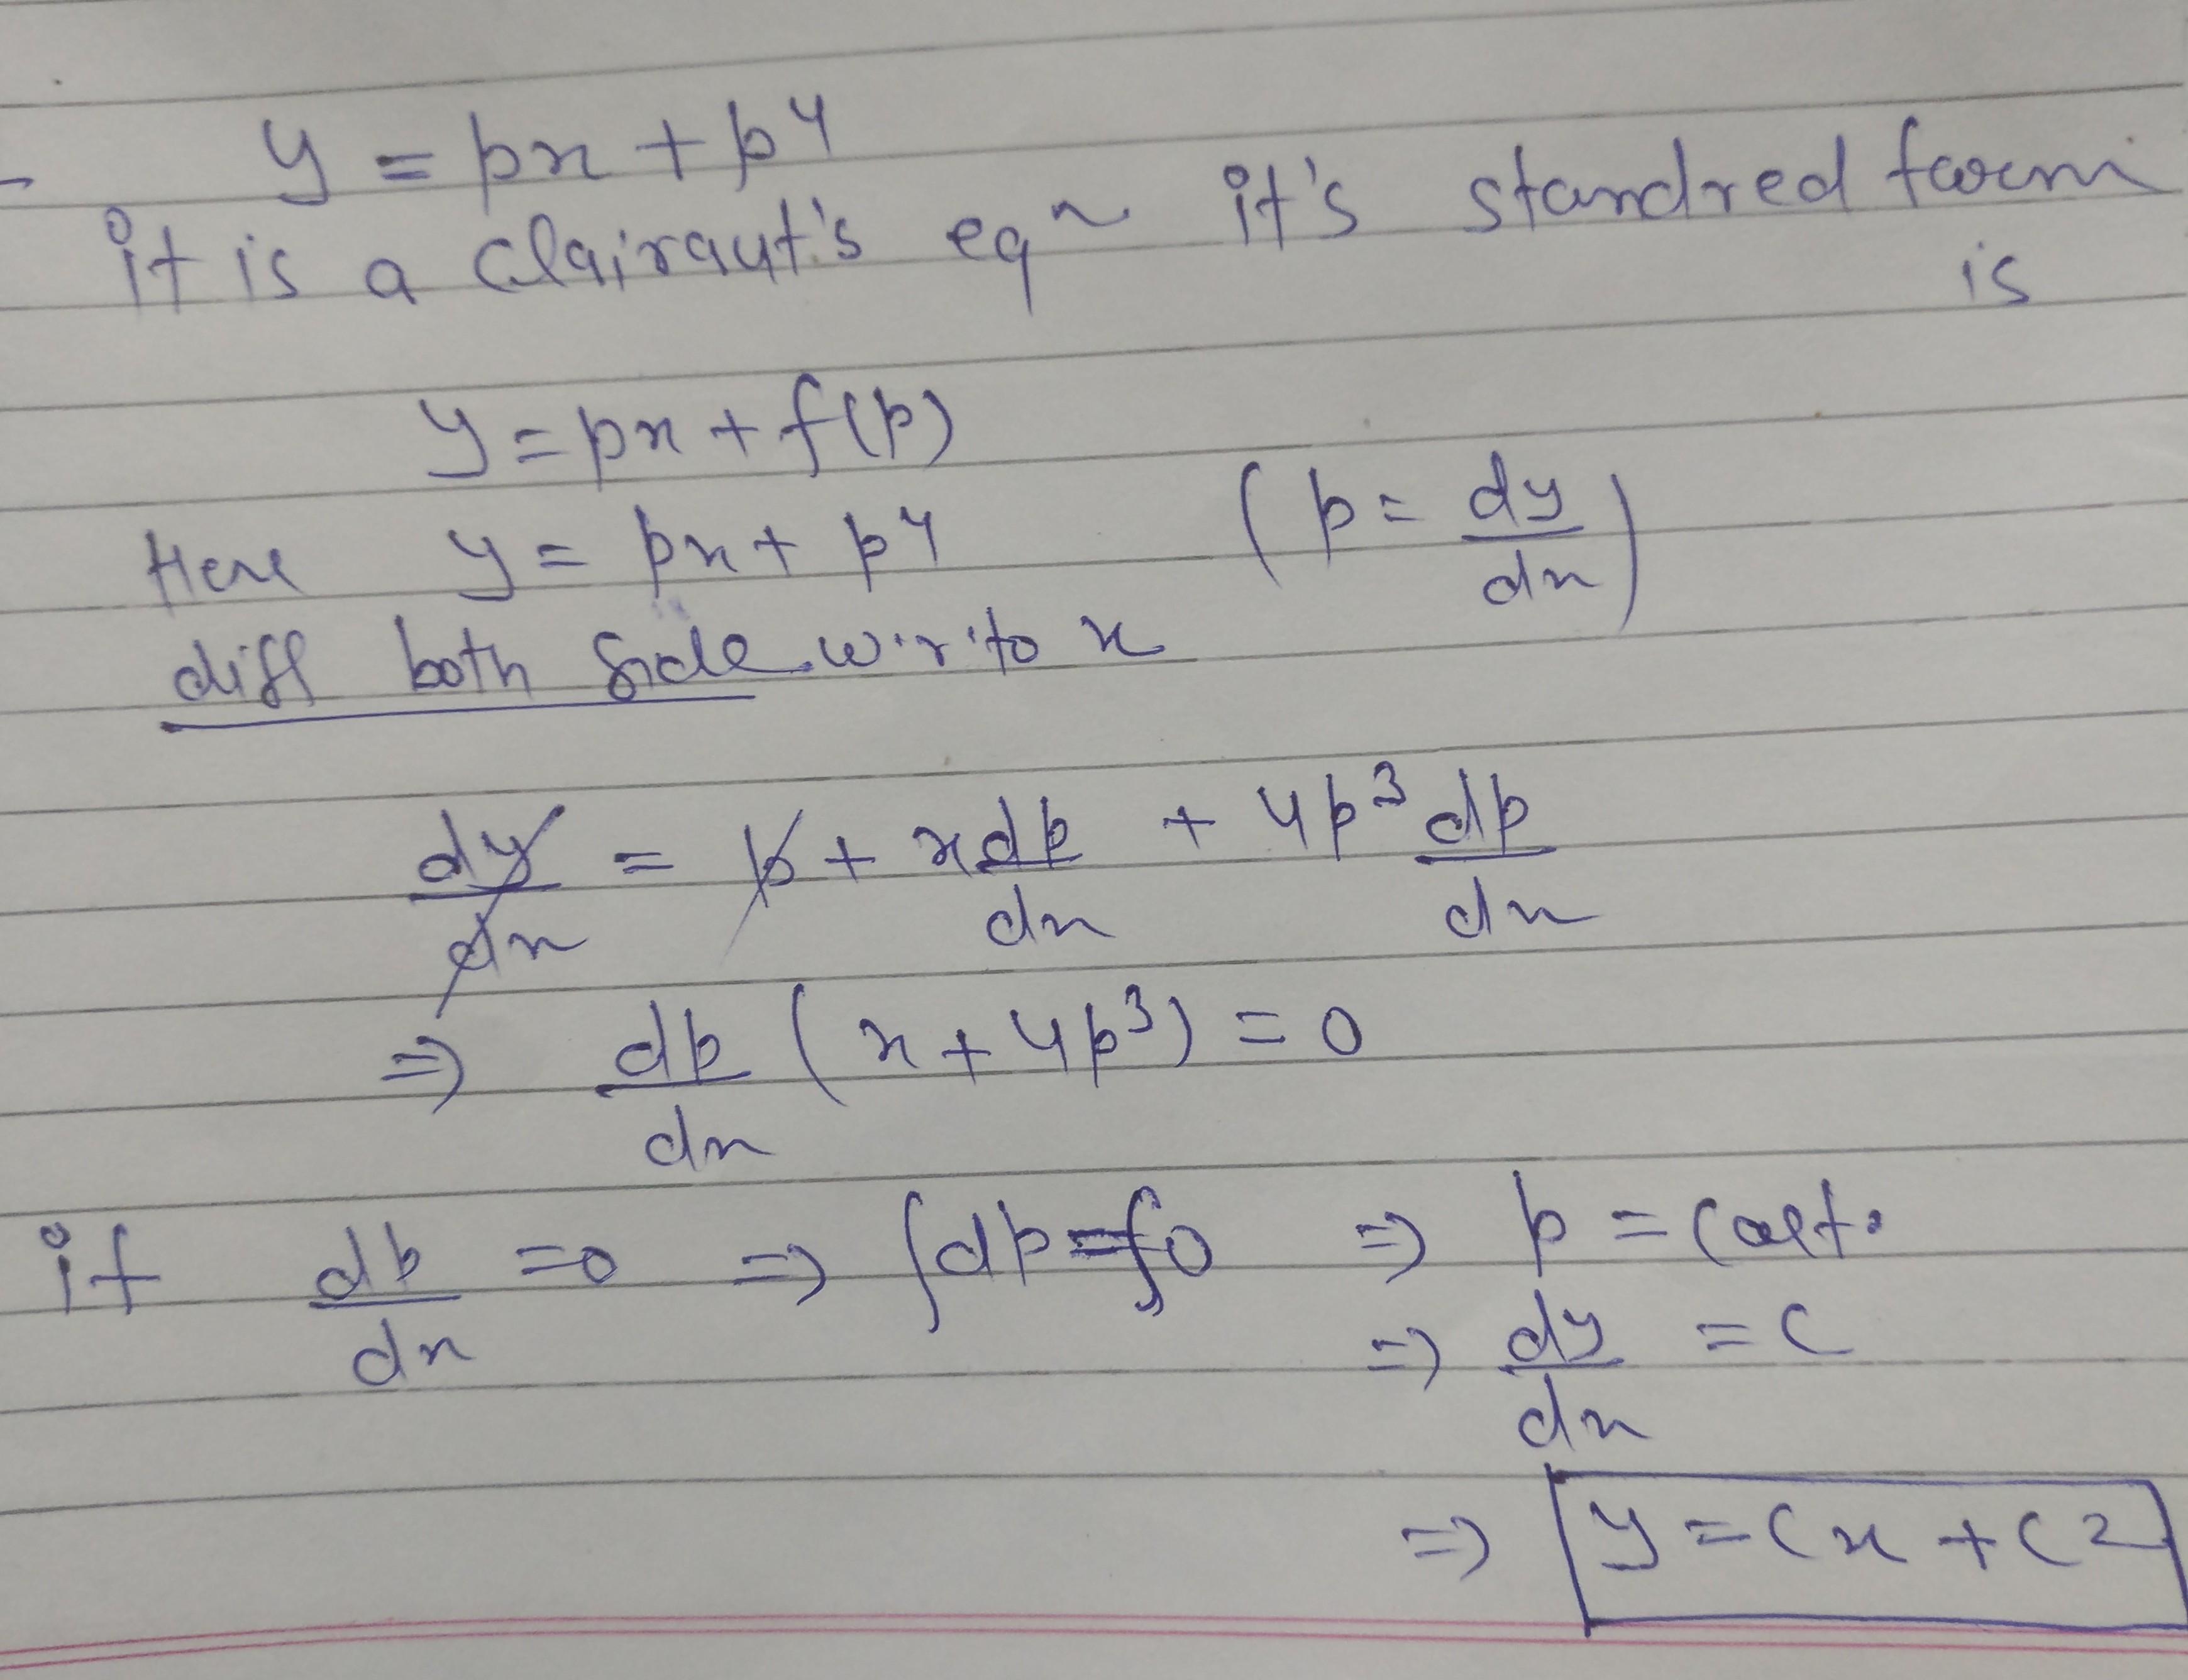 y = px + p⁴
it is a Clairaut's eqⁿ it's standred form
is
y = px + f(p)
Here y = px + p⁴ (p = dy/dx)
diff both side w.r.to x
dy/dx = p + x dp/dx + 4p³ dp/dx
⇒ dp/dx (x + 4p³) = 0
if dp/dx = 0 ⇒ ∫dp = ∫0 ⇒ p = Cost.
⇒ dy/dx = C
⇒ y = Cx + C2